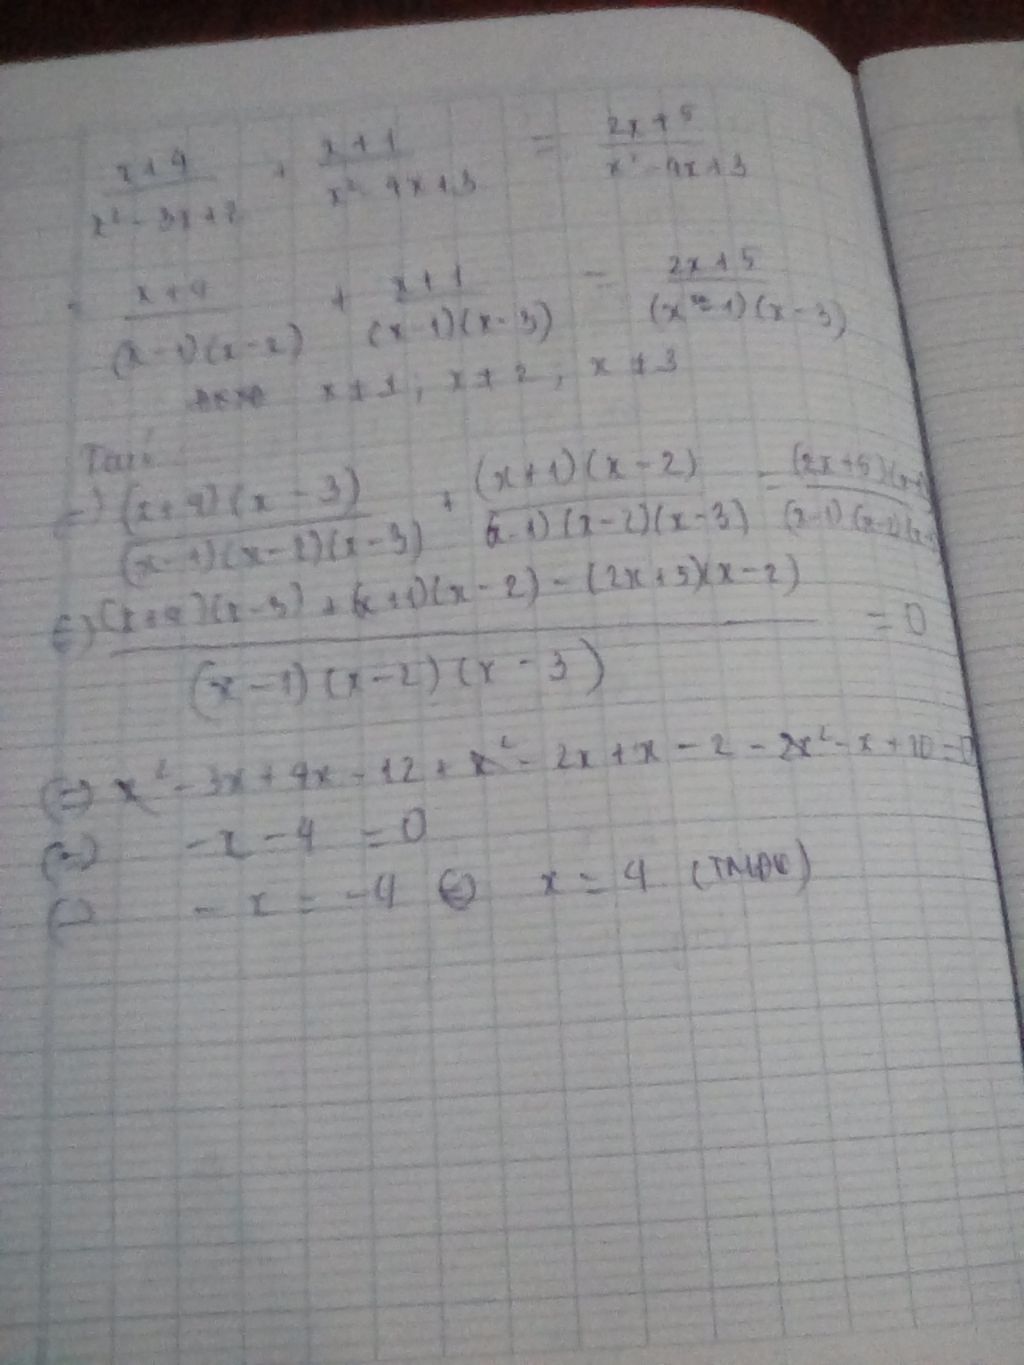 x+4/x²-3x+2 + x+1/x²-4x+3 = 2x+5/x²-4x+3
x+4/(x-1)(x-2) + x+1/(x-1)(x-3) = 2x+5/(x-1)(x-3)
x≠1; x≠2, x≠3
(=) (x+4)(x-3)/(x-1)(x-2)(x-3) + (x+1)(x-2)/(x-1)(x-2)(x-3) - (2x+5)(x-2)/(x-1)(x-2)(x-
(=) (x+4)(x-3)+(x+1)(x-2)-(2x+5)(x-2)/(x-1)(x-2)(x-3) = 0
(=) x²-3x+4x-12+x²-2x+x-2-2x²-x+10=0
(=) -x-4=0
(=) -x=-4 (=) x=4 (TMĐK)